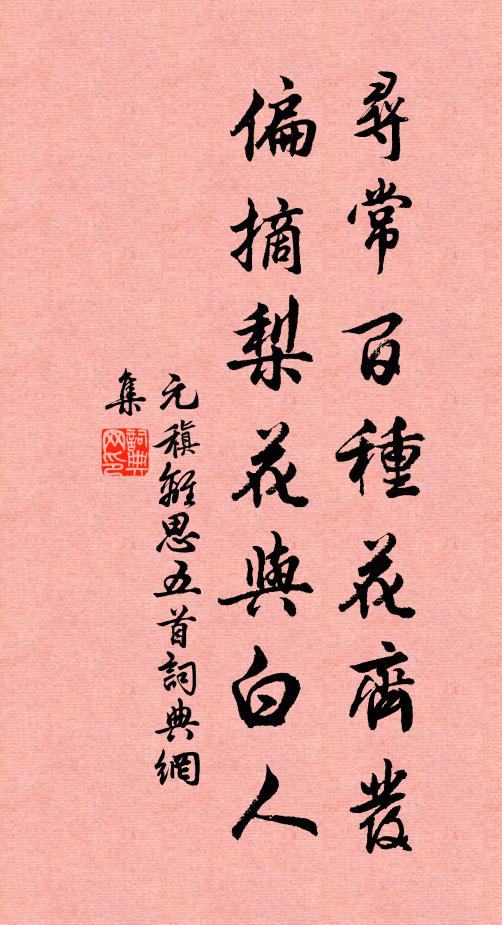 尋常百種花齊發
偏摘梨花與白人
元稹離思五首詞典網
集
詞典
网印